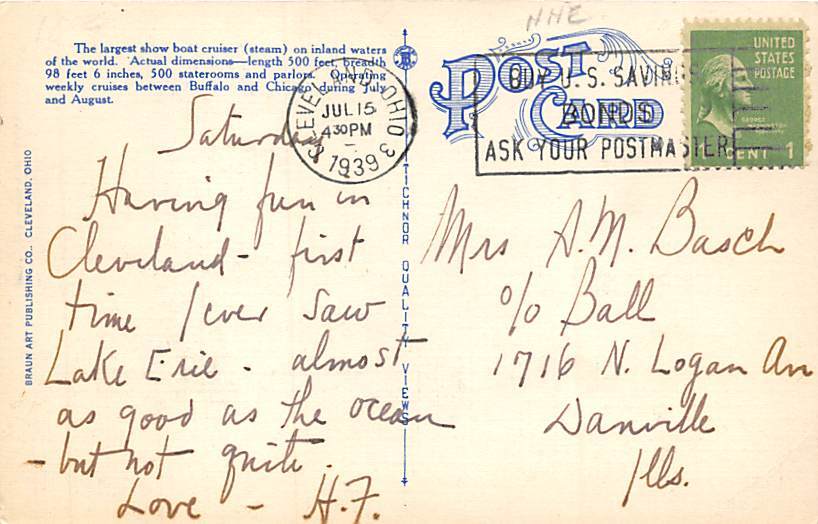 NHE
The largest show boat cruiser (steam) on inland waters
of the world. Actual dimensions—length 500 feet, breadth
98 feet 6 inches, 500 staterooms and parlors. Operating
weekly cruises between Buffalo and Chicago during July
and August.
POST
CARD
CLEVELAND, OHIO
JUL 15
430 PM
1939
3 3
BUY U.S. SAVINGS
BONDS
ASK YOUR POSTMASTER
UNITED
STATES
POSTAGE
GEORGE
WASHINGTON
1 CENT 1
BRAUN ART PUBLISHING CO., CLEVELAND, OHIO
TICHNOR QUALITY VIEWS
Saturday
Having fun in
Cleveland - first
time I ever saw
Lake Erie - almost
as good as the ocean
- but not quite.
Love - H.F.
Mrs A.M. Basch
c/o Ball
1716 N. Logan Av
Danville
Ills.